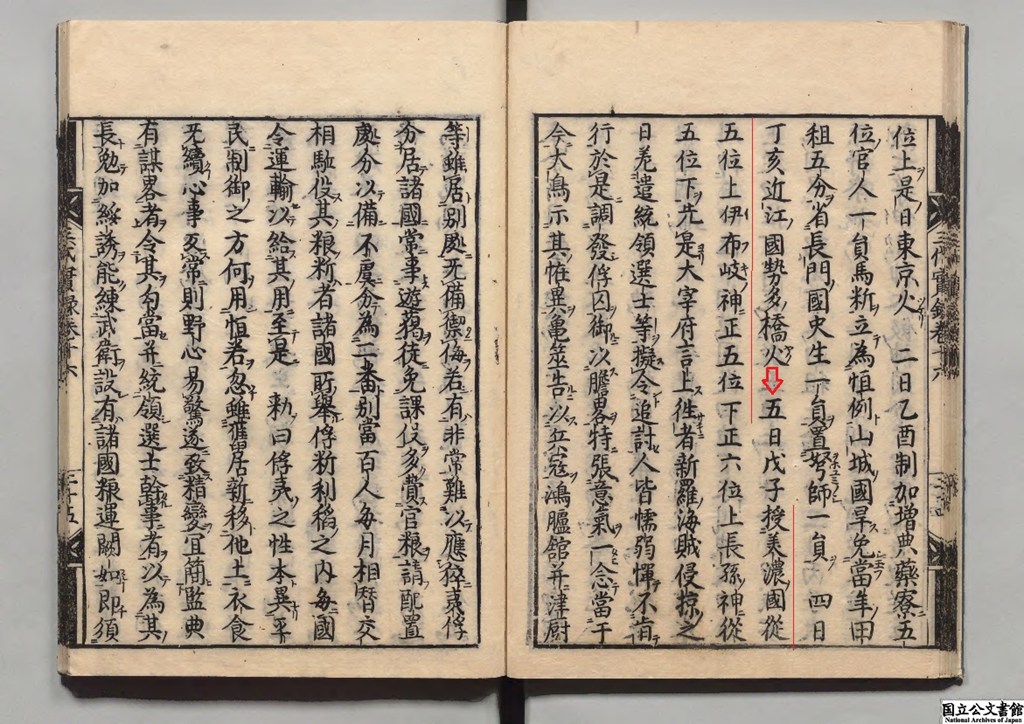 位上是日東京火 二日乙酉制加増典藥寮五
位官人一員馬新立為恒例山城國旱免當年田
租五分省長門國史生一員置弩師一員 四日
丁亥近江國勢多橋火 五日戊子授美濃國從
五位上伊布岐神正五位下正六位上長孫神從
五位下先是大宰府言上徃者新羅海賊侵掠之
日差遣統領選士等擬令追討人皆懦弱憚不肯
行於是調發俘囚御以膽畧特張意氣一念當千
今大鳥示其恠異亀筮告以兵冦鴻臚舘并津厨
等雖居別處无備禦侮若有非常難以應猝夷俘
分居諸國常事遊猟徒免課役多費官粮請配置
處分以備不虞分為二番別當百人毎月相替交
相駈役其粮䉼者諸國所舉俘䉼利稻之内毎國
令運輸以給其用至是 勅曰俘夷之性本異平
民制御之方何用恒若忽離舊居新移他土衣食
无續心事反常則野心易驚遂致精變冝簡監典
有謀畧者令其勾當并統領選士幹事者以為其
長勉加綏誘能練武衛設有諸國粮運闕如即須
三代實録巻十六
二十四
三代實録巻十六
二十五
国立公文書館
National Archives of Japan